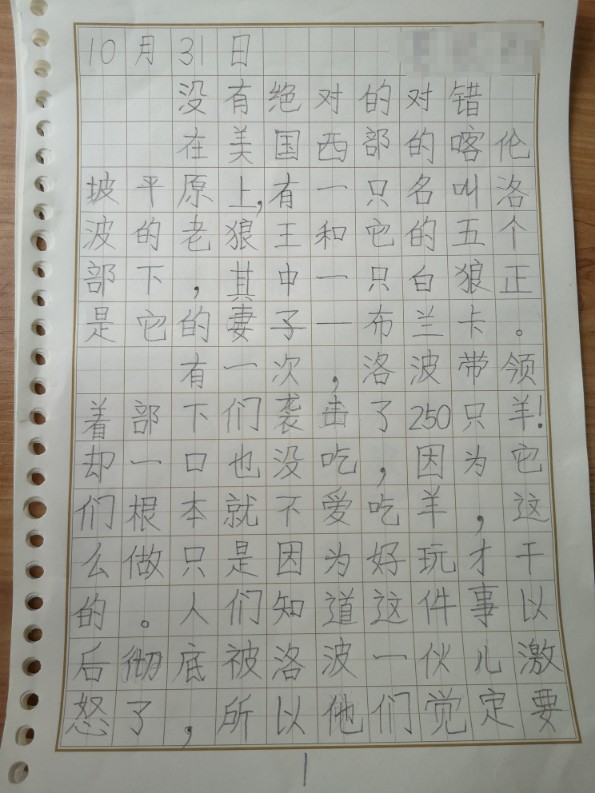 10月31日
没有绝对的对错
在美国西部的喀伦
披平原上,有一只名叫洛
波的老狼王和它的五个
部下，其中一只白狼正
是它的妻子一布兰卡。
有一次，洛波带领
着部下们袭击了250只羊!
却一口也没吃，因为它
们根本就不爱吃羊，这
么做只是因为好玩才干
的。人们知道这件事以
后彻底被洛波一伙儿激
怒了，所以他们觉定要
1